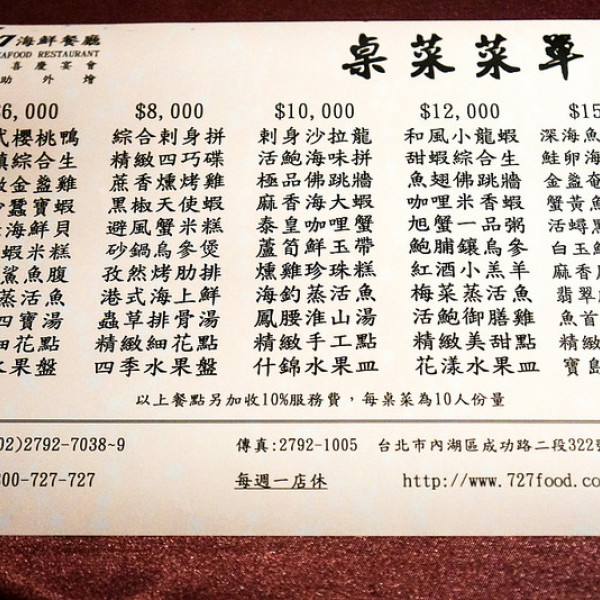 7 海鮮餐廳
EAFOOD RESTAURANT
喜慶宴會
助外燴
桌菜菜單
6,000 $8,000 $10,000 $12,000 $15
式櫻桃鴨 綜合刺身拼 刺身沙拉龍 和風小龍蝦 深海魚
綜合生 精緻四巧碟 活鮑海味拼 甜蝦綜合生 鮭卵海
金盞雞 蔗香燻烤雞 極品佛跳牆 魚翅佛跳牆 金盞
蠶寶蝦 黑椒天使蝦 麻香海大蝦 咖哩米香蝦 蟹黃魚
海鮮貝 避風蟹米糕 泰皇咖哩蟹 旭蟹一品粥 活
蝦米糕 砂鍋烏參煲 蘆筍鮮玉帶 鮑脯鑲烏參 白玉
鯊魚腹 孜然烤肋排 燻雞珍珠糕 紅酒小羔羊 麻香
蒸活魚 港式海上鮮 海釣蒸活魚 梅菜蒸活魚 翡翠
四寶湯 蟲草排骨湯 鳳腰淮山湯 活鮑御膳雞 魚首
細花點 精緻細花點 精緻手工點 精緻美甜點 精緻
水果盤 四季水果盤 什錦水果皿 花漾水果皿 寶島
以上餐點另加收10%服務費，每桌菜為10人份量
02)2792-7038~9 傳真:2792-1005 台北市內湖區成功路二段322
00-727-727 每週一店休 http://www.727food.co